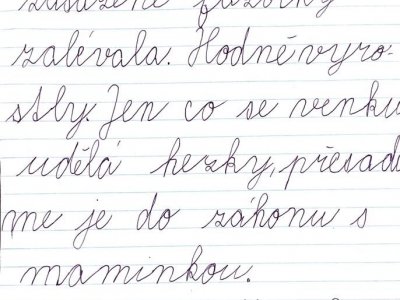 zasazené fazolky
zalévala. Hodně vyro-
stly. Jen co se venku
udělá hezky, přesadí
me je do záhonu s
maminkou.